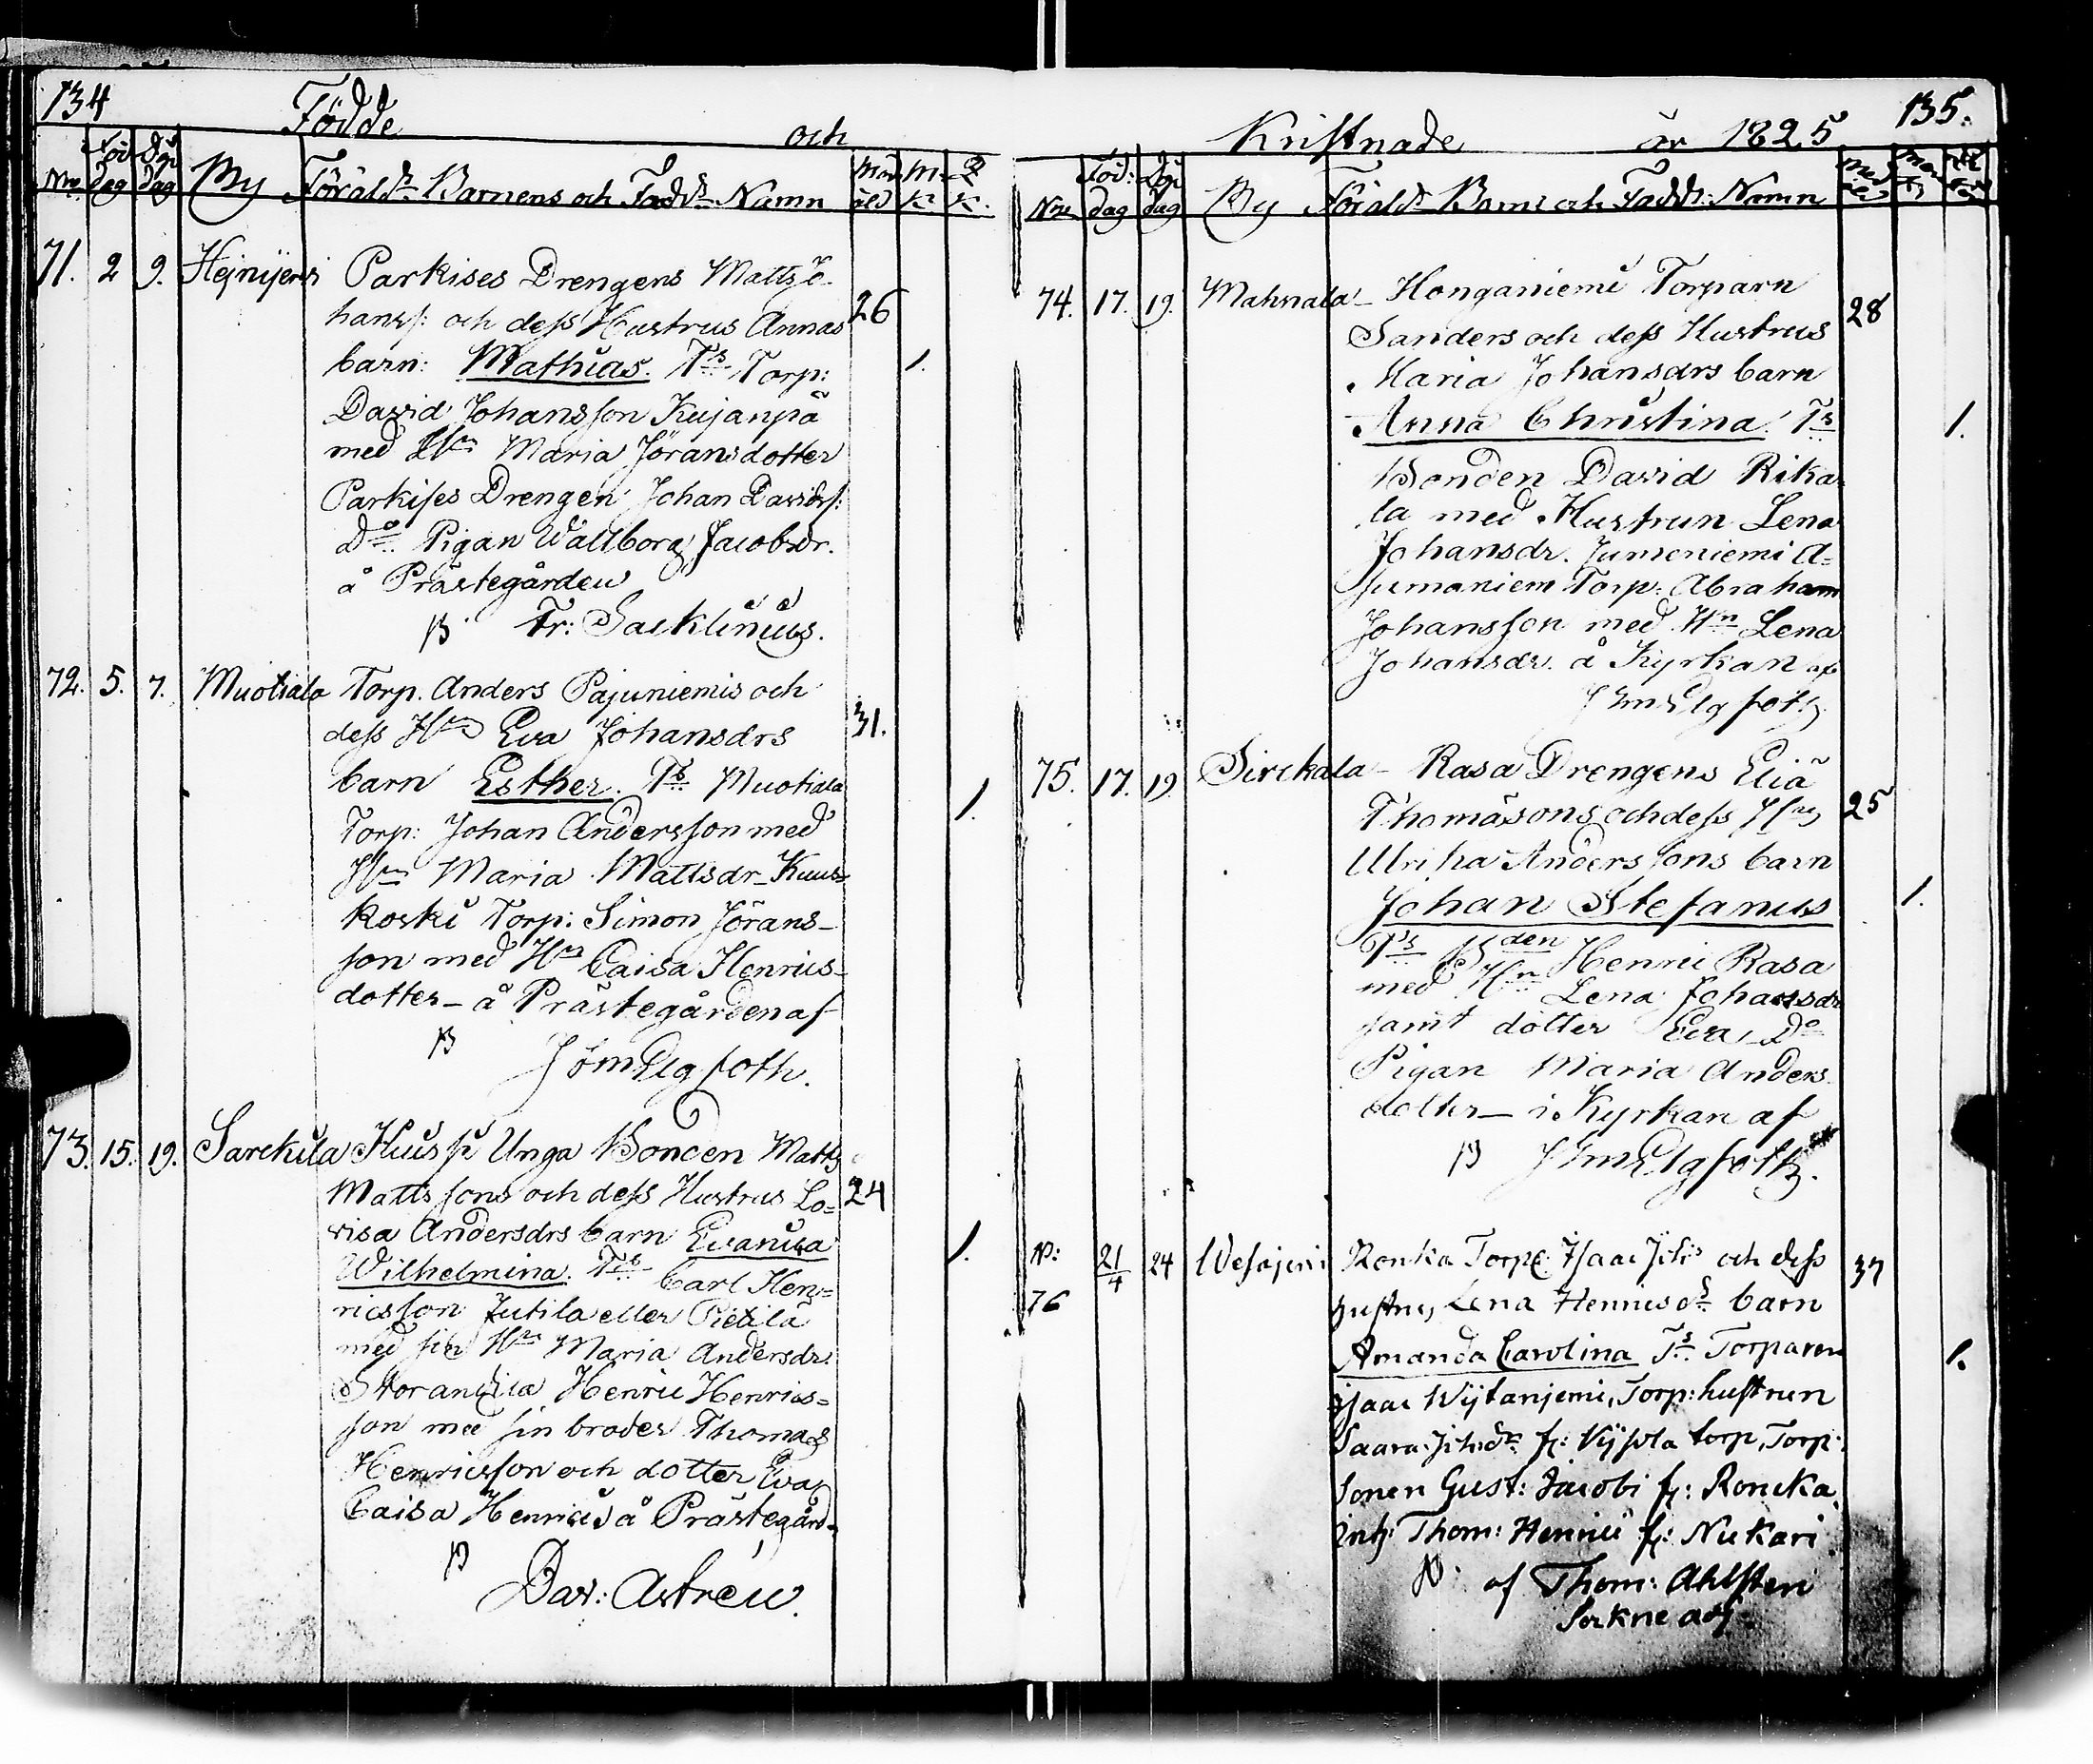 134
Födde
och
Nro Föd dag Döp dag By Föräldrs Barnens och Faddrs Namn Mod. åld M. K. Q. K.
71. 2 9. Hejnijerwi Parkises Drengens Matts Jo-
hanss: och dess Hustrus Annas 26
barn: Mathias. Ts. Torp: 1.
David Johansson Kujanpä
med Hn Maria Jöransdotter
Parkises Drengen Johan Davids:
Do. Pigan Wallborg Jacobsdr.
å Prästegården
Fr: Sacklinius.
72. 5. 7. Muotiala Torp. Anders Pajuniemis och
dess Hus Eva Johansdrs 31.
barn Esther. Ts. Muotiala
Torp: Johan Andersson med 1.
Hn Maria Mattsdr Kuus-
koski Torp: Simon Jörans-
son med Hn Caisa Henrics-
dotter - å Prästegården af
J öm Elgfoth.
73. 15. 19. Sarckila Huus Unga Bonden Matts
Matts sons och dess Hustrus Lo= 24
visa Andersdrs barn Evanica
Wilhelmina. Ts. Carl Hen= 1.
ricsson Jutila eller Pietilä
med sin Hn Maria Andersdr
Storanzila Henric Henrics=
son med sin broder Thomas
Henricsson och dotter Eva
Caisa Henrics å Prästegård
Dav: Astrén.
Kristnade år 1825 135.
Nro Föd: dag Döp dag By Föräldr Barns och Faddr: Namn
74. 17. 19. Mahnala - Honganiemi Torparn 28
Sanders och dess Hustrus
Maria Johansdrs barn
Anna Christina. Ts 1.
Bonden David Rika-
la med Hustrun Lena
Johansdr. Jumeniemi A-
Jumaniem Torp: Abraham
Johansson med Hn Lena
Johansdr. å Kyrkan af
J öm Elgfoth.
75. 17. 19. Sirckala - Rasa Drengens Eliä
Thomäsons och dess Hus 25
Ulrika Anderssons barn
Johan Stefanus 1.
Ts Bden Henric Rasa
med Hn Lena Johansdr
samt dotter Eva, Do
Pigan Maria Anders
dotter - i Kyrkan af
J öm Elgfoth.
N: 21/4 24 Wesajerwi Ronka Torp: Isaac Johs och dess 37
76 hustrus, Lena Henricsdr barn
Amanda Carolina Ts. Torparen 1.
Isaac Wijtaniemi, Torp: hustrun
Saara Johsdr fr: Kijsola torp, Torp:
sonen Gust: Jacobi fr: Roncka,
Inh: Thom: Henrici fr: Nukari
af Thom: Ahlsten
Sockne adj.